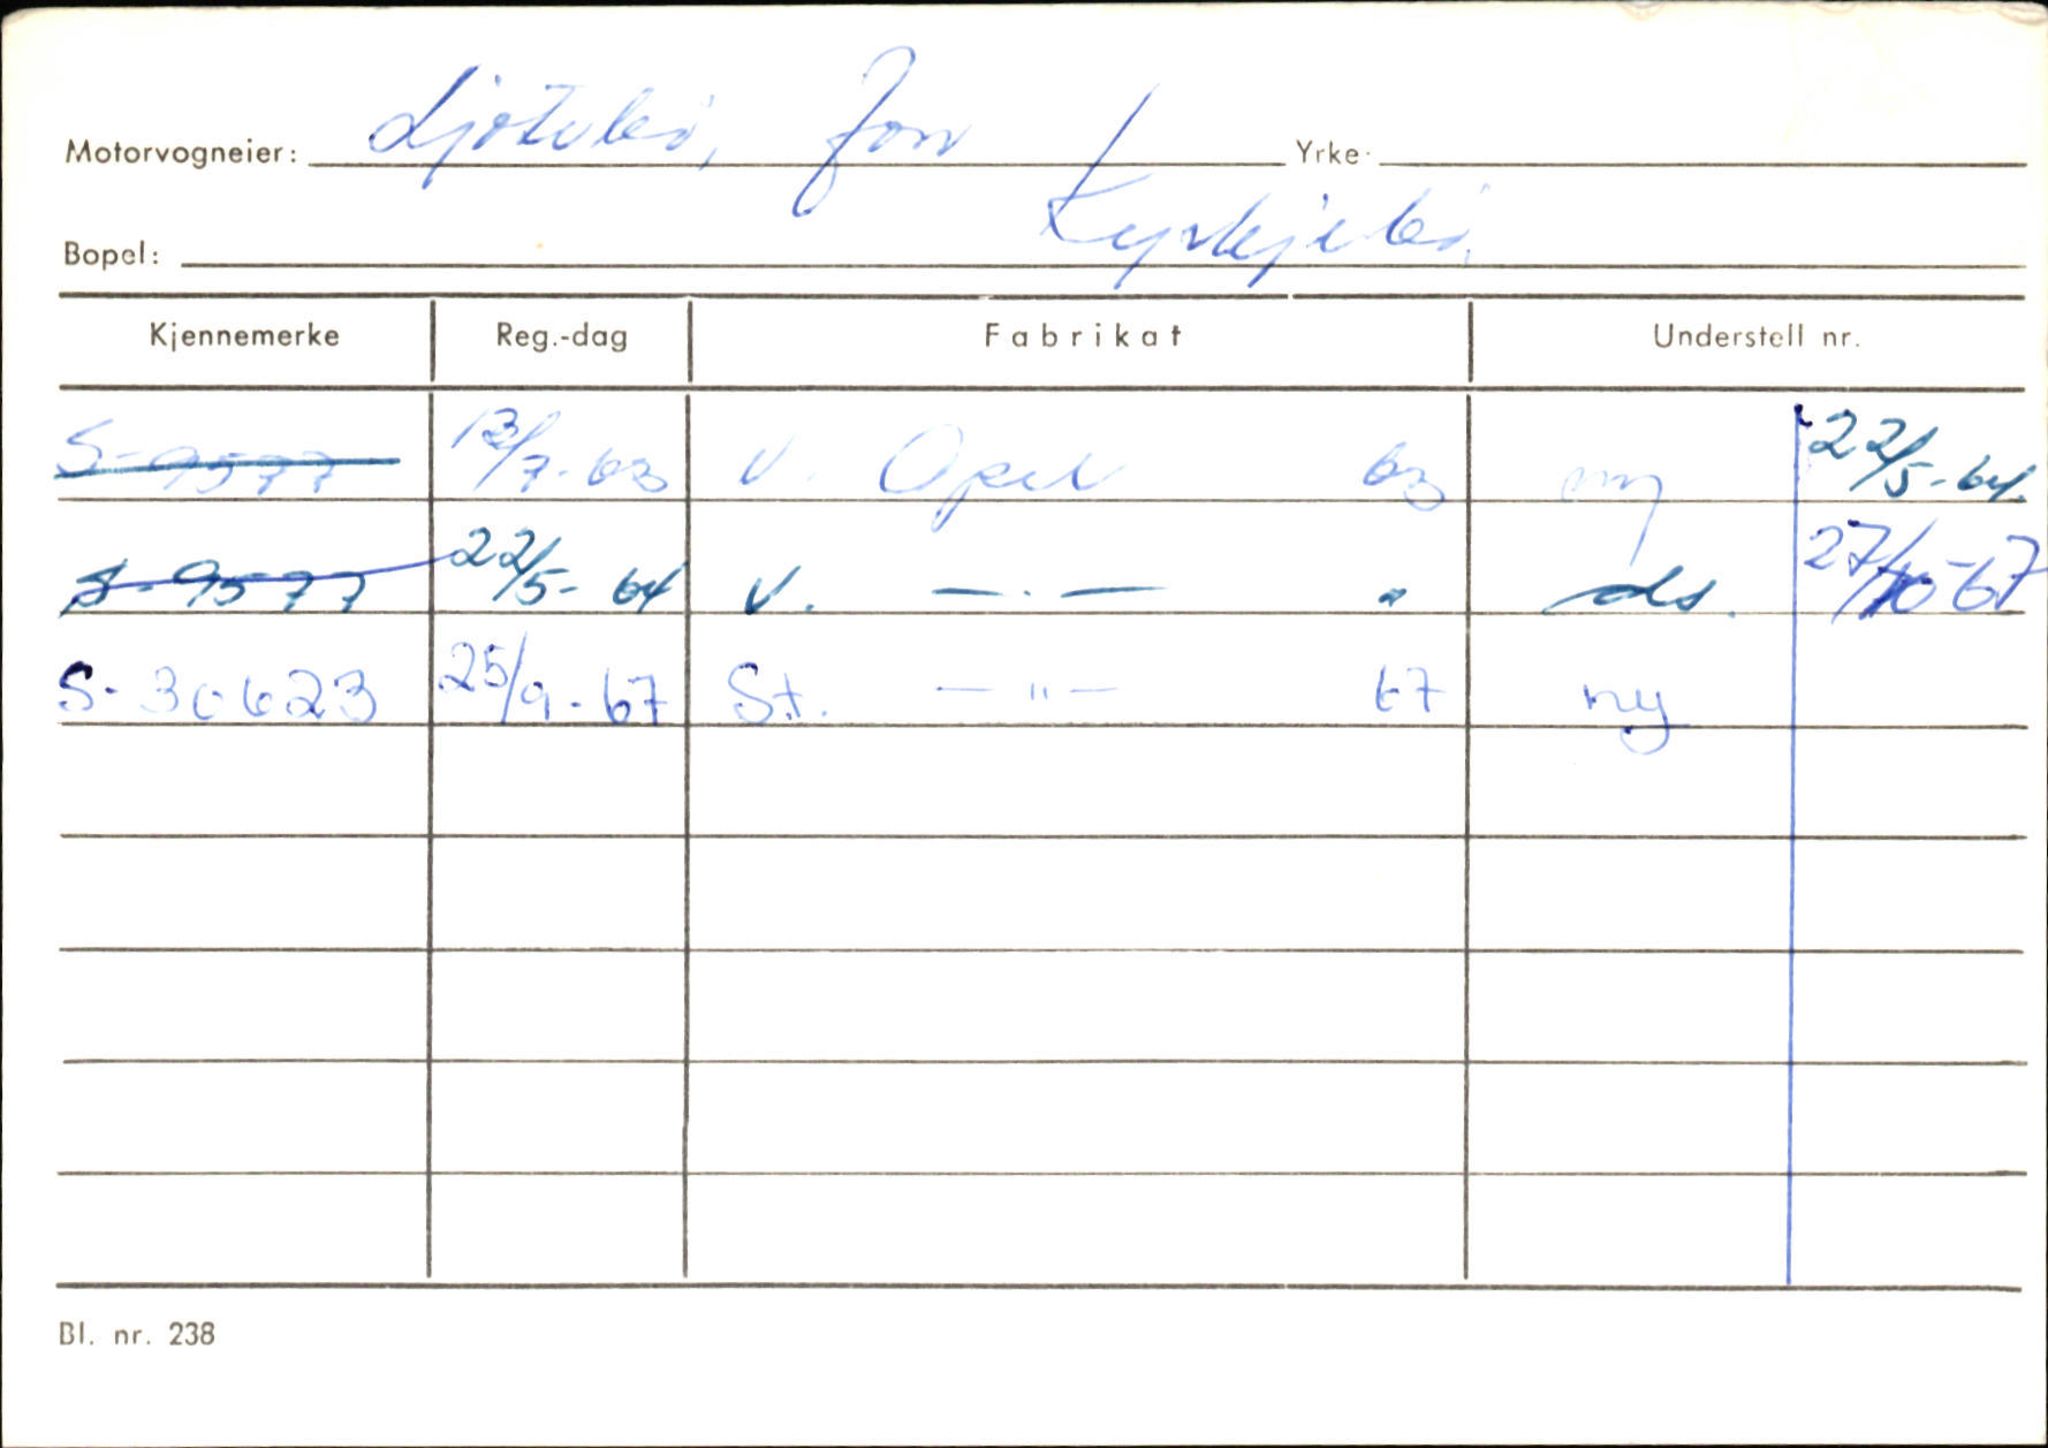 Motorvogneier: Ljøtebø, Jon Yrke:
Bopel: Kyrkjebø.
Kjennemerke Reg.-dag Fabrikat Understell nr.
S-9577 13/7-63 V. Opel 63 ny 22/5-64.
S-9577 22/5-64 V. —.— " ds. 27/10-67
S-30623 25/9-67 St. —"— 67 ny
Bl. nr. 238